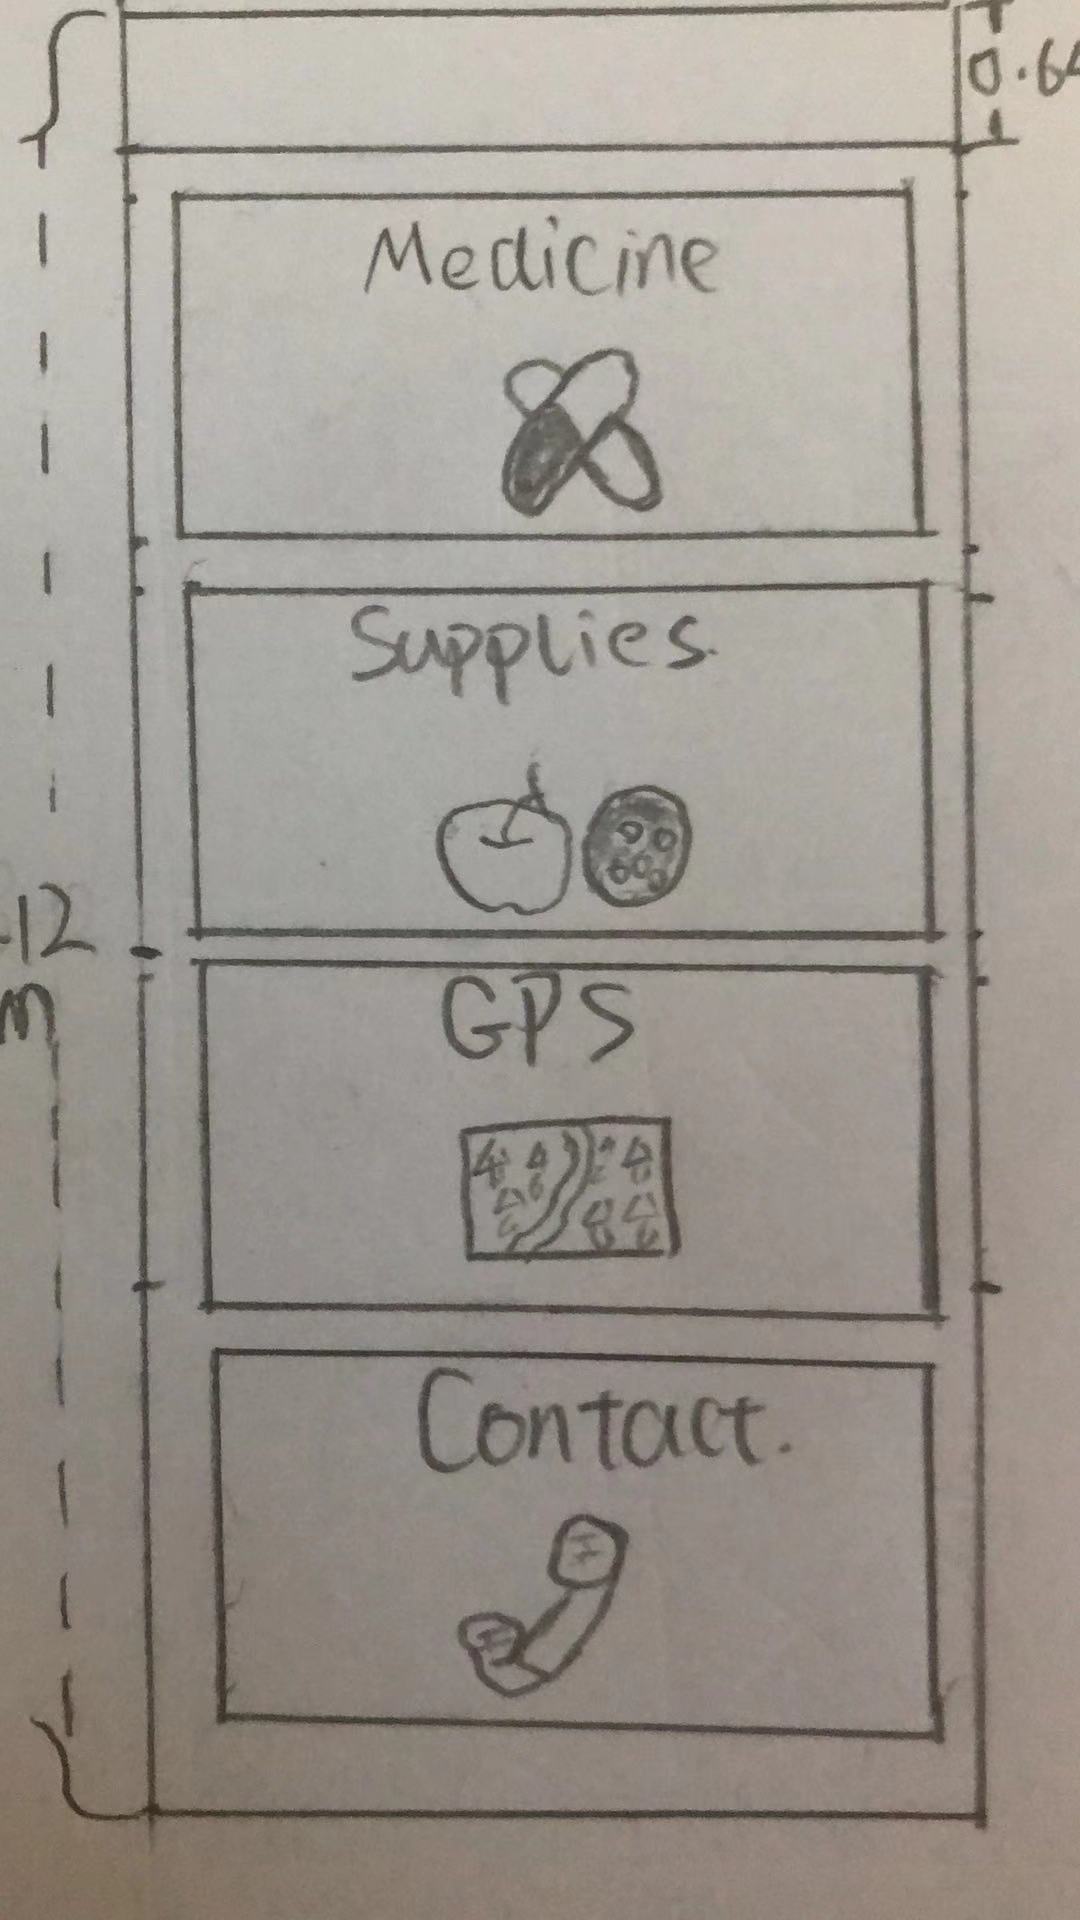 0.64
Medicine
Supplies.
.12
m
GPS
Contact.